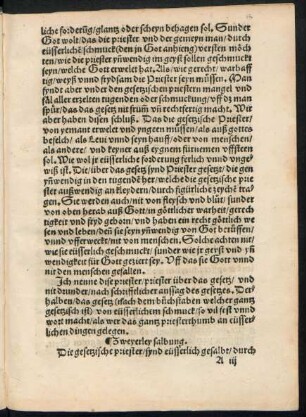 liche forderūg/glantz oder scheyn behagen sol. Sunder
Got wolt/das die priester vnd der gemeyn man/durch
eüsserlichē schmuck (den jn Got anhieng) versten möch
ten/wie die priester ynwendig im geyst sollen geschmückt
seyn/welche Gott erwelet hat. Als/wie gerecht/warhaff
tig/weyß vnnd frydsam die Priester seyn müssen. Man
fynder aber vnder den gesetzischen priestern mangel vnd
fäl aller erzelten tugenden oder schmuckung/vff dz man
spür/das das gesetz nit frum vñ rechtfertig macht. We
aber haben disen schluß. Das die gesetzische Priester/
von yemant erwelt vnd yngeen müssen/als auß gottes
beselch/als Leui vnnd seyn hauff/oder von menschen/
als ander/vnd keyner auß eygnem fürnemen vfftretten
Wie wol je eüsserliche forderung ferlich vnnd vngewe
wiß ist. Die/über das gesetz seynd Priester gesetz/die gen
ynwendig in den tugendē her/welche die gesetzische prie
ster außwendig an kleydern/durch figürliche zeychē tra
gen. Sie werden auch/nit von fleysch vnd blüt/sunder
von oben herab auß Gott/in götlicher warheit/gerech
tigkeit vnd fryd geborn/vnd haben ein recht götlich we
sen vnd leben/den sie seyn ynwendig von Got berüffen/
vnnd vfferweckt/nit von menschen. Solche achten nit/
wie sie eüsserlich geschmuckt/sunder wie jr geyst vnd yn
wendigkeit für Gott geziert sey. Vff das sie Gott vnnd
nit den menschen gefallen.
Ich nenne die priester/priester über das gesetz/vnd
nit drunder/nach schrifftlicher aussag des gesetzes. Der
halben/das gesetz (nach dem büchstaben welcher gantz
gesetzisch ist) von eüsserlichem schmuck/so vil sest vnnd
wort macht/als wer das gantz priesterthumb an eüsser
lichen dingen gelegen.
Zweyerley salbung.
Die gesetzische priester/synd eüsserlich gesalbt/durch
A iij